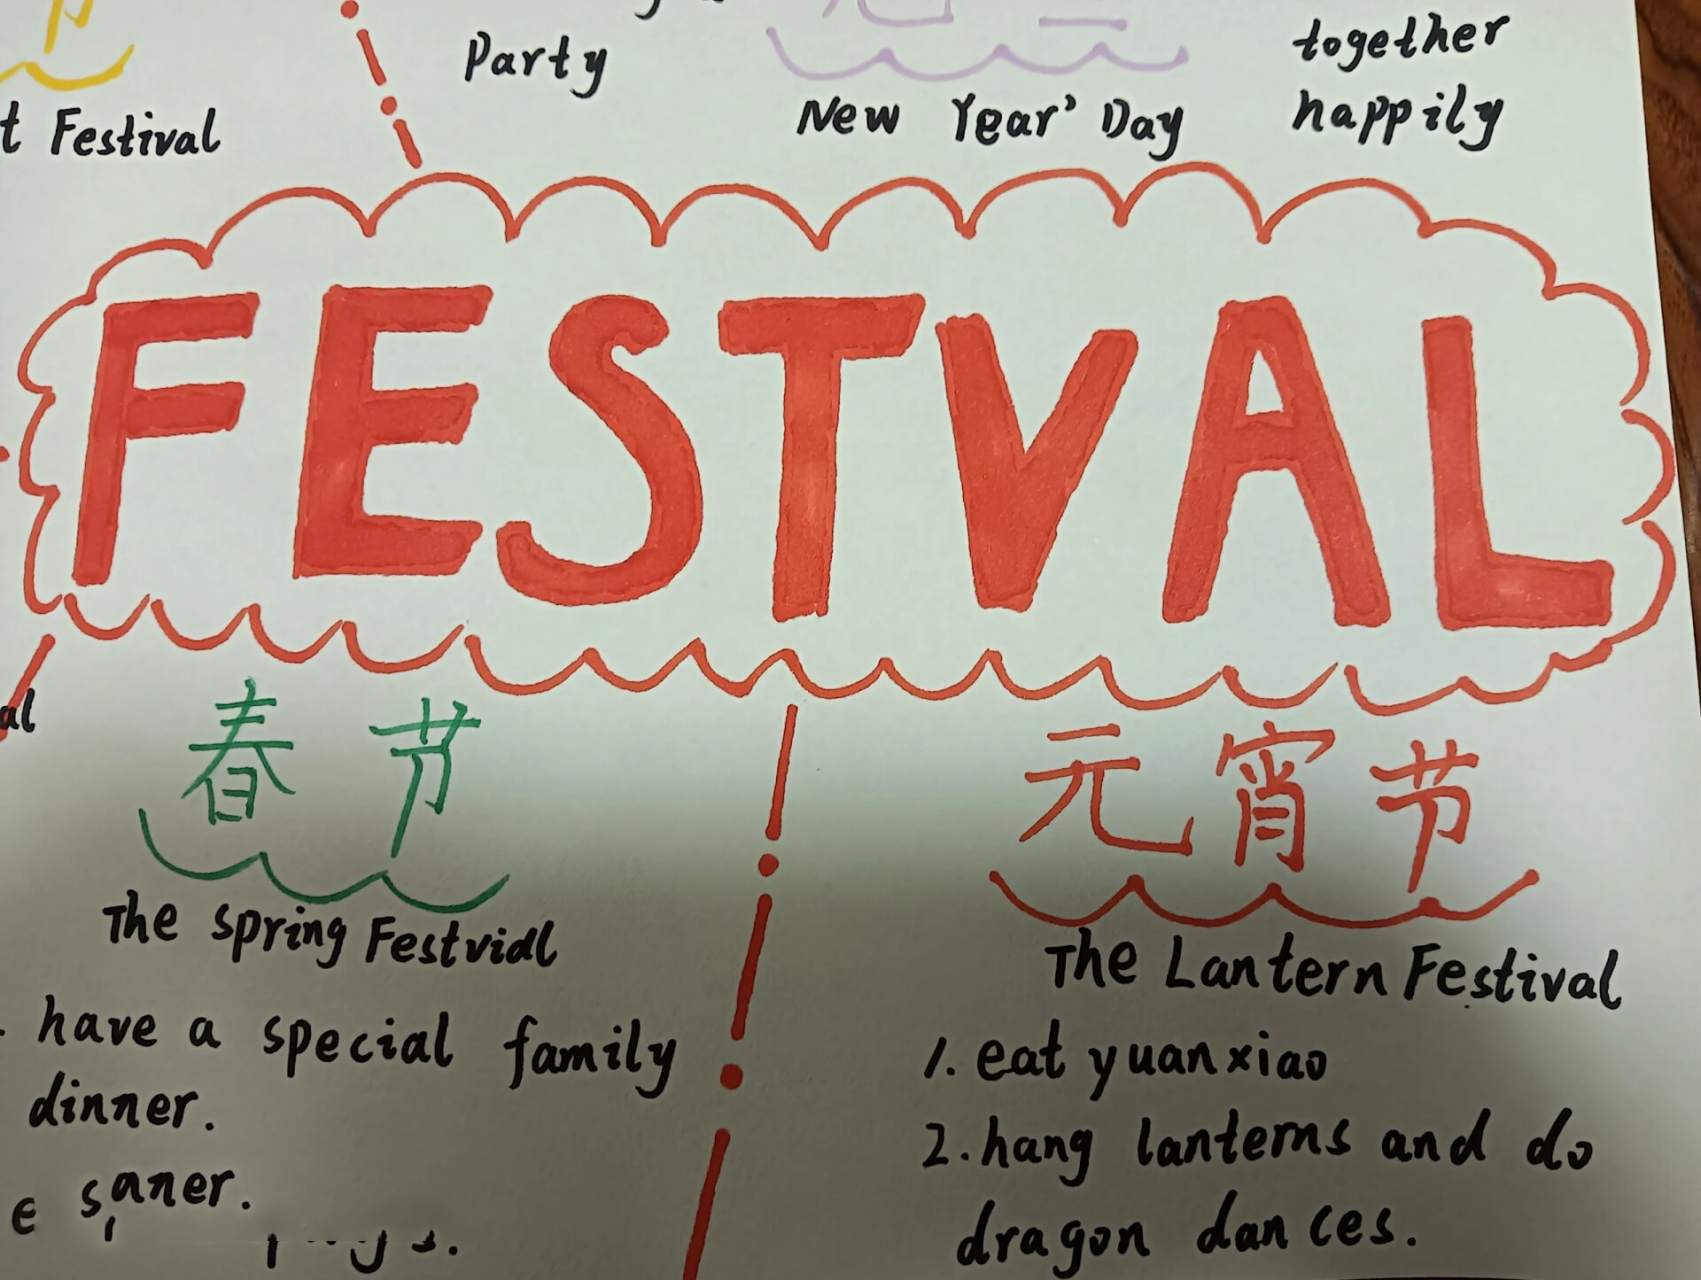 Party
together
New Year' Day
happily
t Festival
FESTVAL
al
春节
The spring Festvidl
have a special family
dinner.
元宵节
The Lantern Festival
1. eat yuanxiao
2. hang lanterns and do
dragon dances.